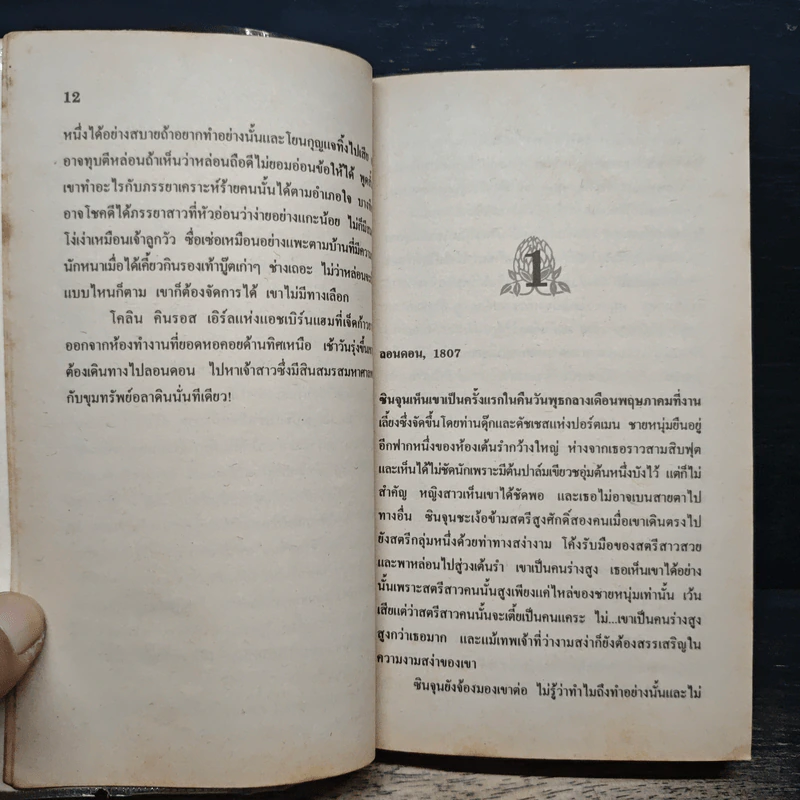 12
หนึ่งได้อย่างสบายถ้าอยากทำอย่างนั้นและโยนกุญแจทิ้งไปเสีย
อาจทุบตีหล่อนถ้าเห็นว่าหล่อนถือดีไม่ยอมอ่อนข้อให้ได้
เขาทำอะไรกับภรรยาเคราะห์ร้ายคนนั้นได้ตามอำเภอใจ
อาจโชคดีได้ภรรยาสาวที่หัวอ่อนว่าง่ายอย่างแกะน้อย ไม่ก็
โง่เง่าเหมือนเจ้าลูกวัว ซื่อเซ่อเหมือนอย่างแพะตามบ้านที่มี
นักหนาเมื่อได้เคี้ยวกินรองเท้าบู๊ตเก่าๆ ช่างเถอะ ไม่ว่าหล่อน
แบบไหนก็ตาม เขาก็ต้องจัดการได้ เขาไม่มีทางเลือก
โคลิน คินรอส เอิร์ลแห่งแอชเบิร์นแฮมที่เจ็ด
ออกจากห้องทำงานที่ยอดหอคอยด้านทิศเหนือ เช้าวันรุ่งขึ้น
ต้องเดินทางไปลอนดอน ไปหาเจ้าสาวซึ่งมีสินสมรส
กับขุมทรัพย์อลาดินนั่นทีเดียว!
1
ลอนดอน, 1807
ซินจุนเห็นเขาเป็นครั้งแรกในคืนวันพุธกลางเดือนพฤษภาคมที่งาน
เลี้ยงซึ่งจัดขึ้นโดยท่านดุ๊กและดัชเชสแห่งปอร์ตแมน ชายหนุ่มยืนอยู่
อีกฟากหนึ่งของห้องเต้นรำกว้างใหญ่ ห่างจากเธอราวสามสิบฟุต
และเห็นได้ไม่ชัดนักเพราะมีต้นปาล์มเขียวชอุ่มต้นหนึ่งบังไว้ แต่ก็ไม่
สำคัญ หญิงสาวเห็นเขาได้ชัดพอ และเธอไม่อาจเบนสายตาไป
ทางอื่น ซินจุนชะเง้อข้ามสตรีสูงศักดิ์สองคนเมื่อเขาเดินตรงไป
ยังสตรีกลุ่มหนึ่งด้วยท่าทางสง่างาม โค้งรับมือของสตรีสาวสวย
และพาหล่อนไปสู่วงเต้นรำ เขาเป็นคนร่างสูง เธอเห็นเขาได้อย่าง
นั้นเพราะสตรีสาวคนนั้นสูงเพียงแค่ไหล่ของชายหนุ่มเท่านั้น เว้น
เสียแต่ว่าสตรีสาวคนนั้นจะเตี้ยเป็นคนแคระ ไม่...เขาเป็นคนร่างสูง
สูงกว่าเธอมาก และแม้เทพเจ้าที่ว่างามสง่าก็ยังต้องสรรเสริญใน
ความงามสง่าของเขา
ซินจุนยังจ้องมองเขาต่อ ไม่รู้ว่าทำไมถึงทำอย่างนั้นและไม่